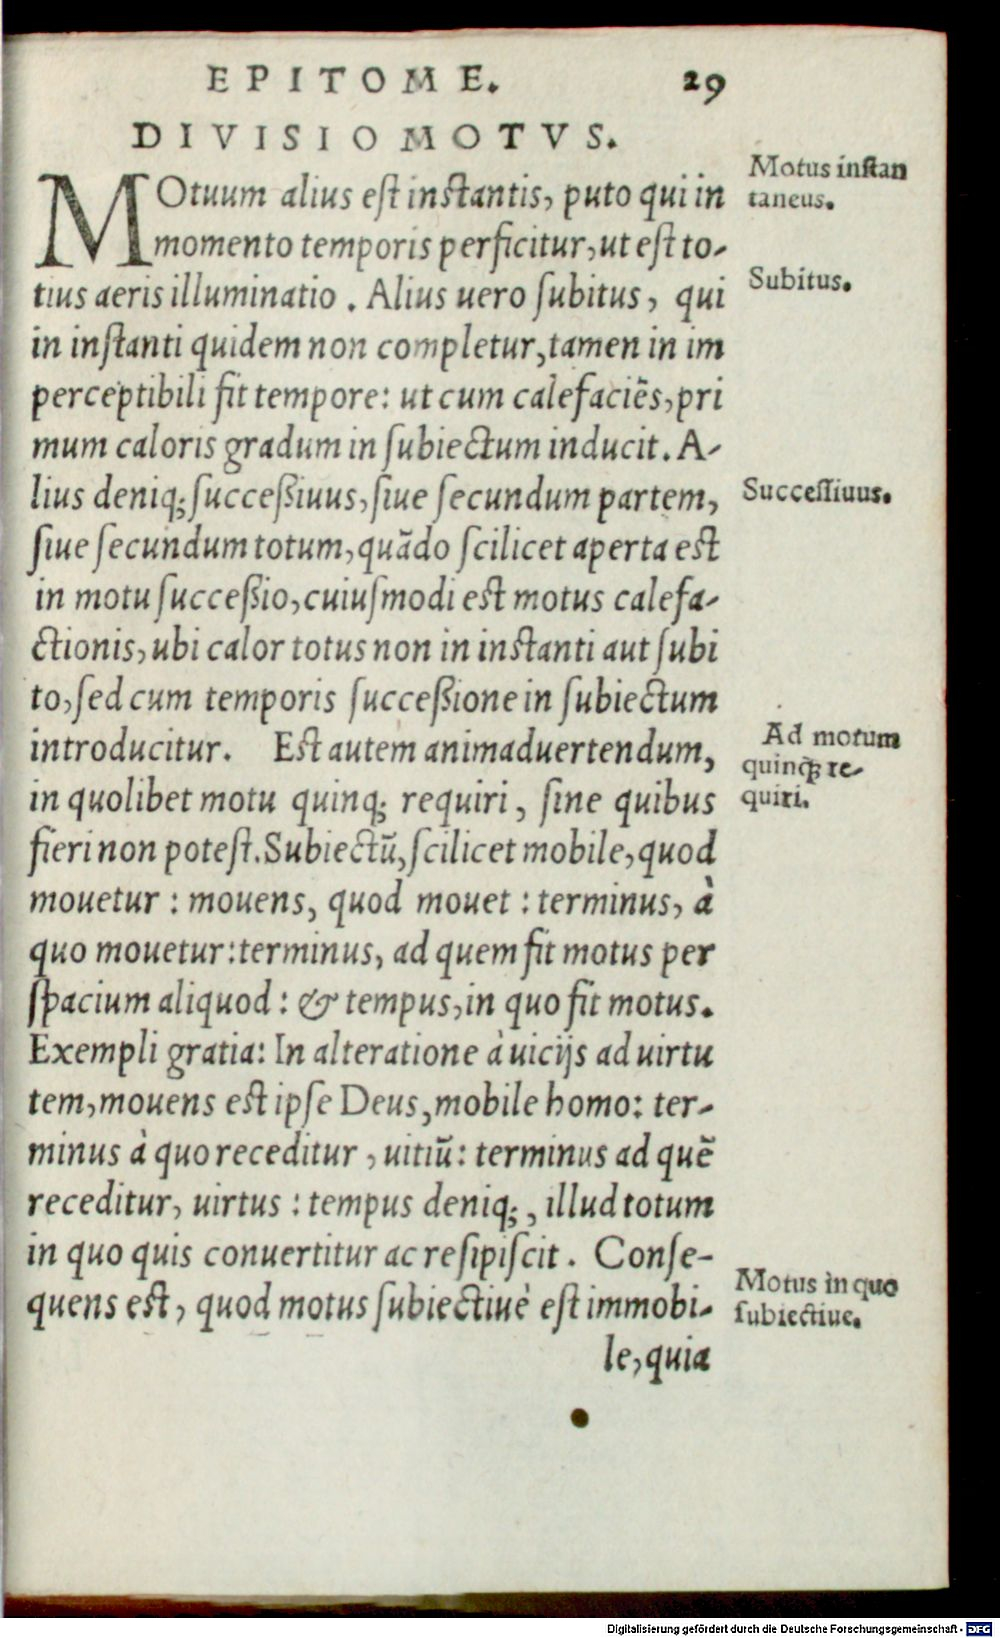 EPITOME. 29
DIVISIO MOTVS.
MOtuum alius est instantis, puto qui in
momento temporis perficitur, ut est to-
tius aeris illuminatio. Alius uero subitus, qui
in instanti quidem non completur, tamen in im
perceptibili fit tempore: ut cum calefaciẽs, pri
mum caloris gradum in subiectum inducit. A-
lius deniq; succeßiuus, siue secundum partem,
siue secundum totum, quãdo scilicet aperta est
in motu succeßio, cuiusmodi est motus calefa-
ctionis, ubi calor totus non in instanti aut subi
to, sed cum temporis succeßione in subiectum
introducitur. Est autem animaduertendum,
in quolibet motu quinq; requiri, sine quibus
fieri non potest. Subiectũ, scilicet mobile, quod
mouetur: mouens, quod mouet: terminus, à
quo mouetur: terminus, ad quem fit motus per
spacium aliquod: & tempus, in quo fit motus.
Exempli gratia: In alteratione à uicijs ad uirtu
tem, mouens est ipse Deus, mobile homo: ter-
minus à quo receditur, uitiũ: terminus ad quẽ
receditur, uirtus: tempus deniq;, illud totum
in quo quis conuertitur ac resipiscit. Conse-
quens est, quod motus subiectiuè est immobi-
le, quia
Motus instan
taneus.
Subitus.
Successiuus.
Ad motum
quinq; re-
quiri.
Motus in quo
subiectiue.
Digitalisierung gefördert durch die Deutsche Forschungsgemeinschaft - DFG